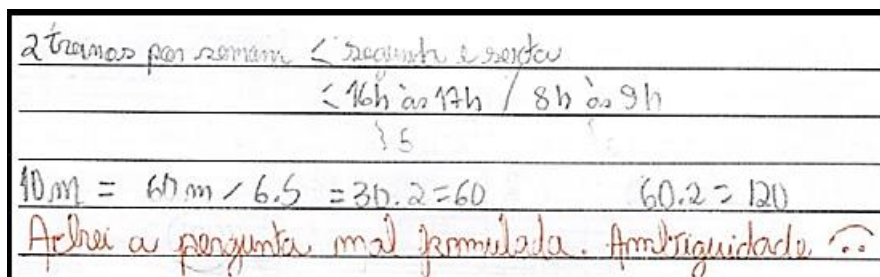 2 treinos por semana < segunda e sexta
< 16h às 17h / 8h às 9h
} 5
10m = 60m / 6.5 = 30.2=60 60.2=120
Achei a pergunta mal formulada. Ambiguidade